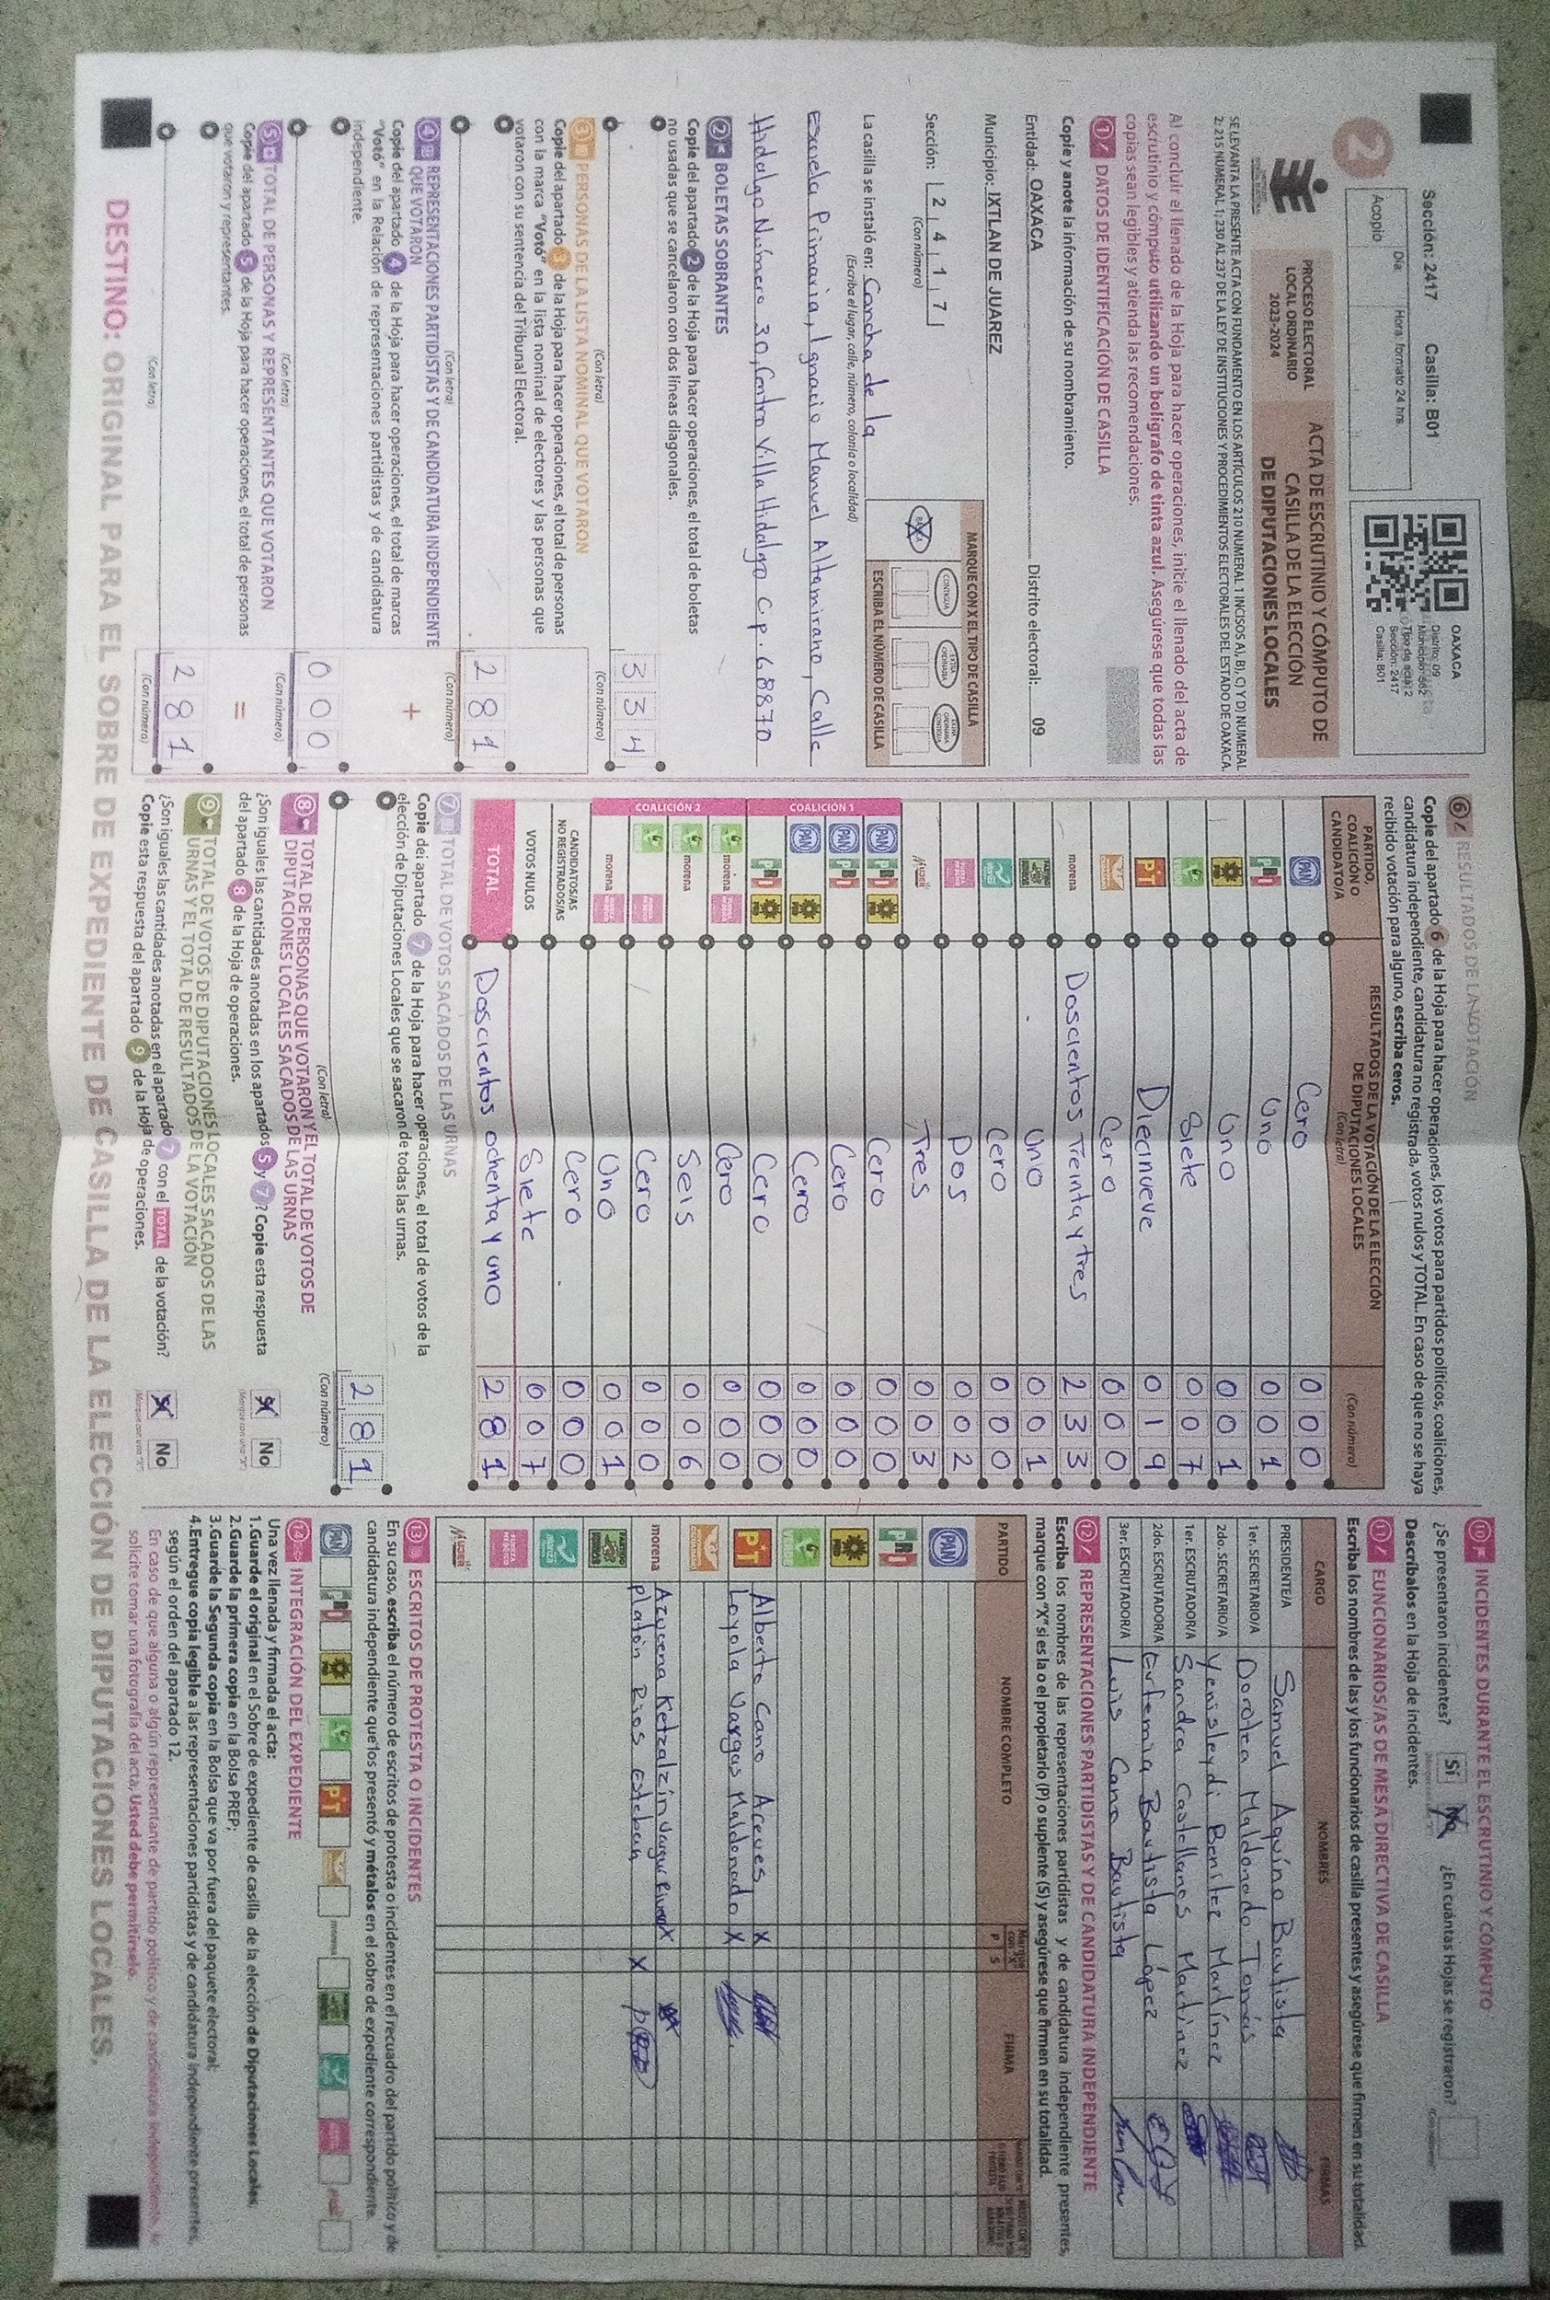 Sección: 2417 Casilla: B01
Día: Hora: formato 24 hrs.
Acopio
2
OAXACA
Distrito: 09
Sección: 2417
Casilla: B01
PROCESO ELECTORAL
LOCAL ORDINARIO
2023-2024
ACTA DE ESCRUTINIO Y CÓMPUTO DE
CASILLA DE LA ELECCIÓN
DE DIPUTACIONES LOCALES
SE LEVANTA LA PRESENTE ACTA CON FUNDAMENTO EN LOS ARTÍCULOS 210 NUMERAL 1 INCISOS A), B), C) Y D) NUMERAL
2; 215 NUMERAL 1; 230 AL 237 DE LA LEY DE INSTITUCIONES Y PROCEDIMIENTOS ELECTORALES DEL ESTADO DE OAXACA.
Al concluir el llenado de la Hoja para hacer operaciones, inicie el llenado del acta de
escrutinio y cómputo utilizando un bolígrafo de tinta azul. Asegúrese que todas las
copias sean legibles y atienda las recomendaciones.
1 DATOS DE IDENTIFICACIÓN DE CASILLA
Copie y anote la información de su nombramiento.
Entidad: OAXACA Distrito electoral: 09
Municipio: IXTLAN DE JUAREZ
Sección: 2 4 1 7
(Con número)
MARQUE CON X EL TIPO DE CASILLA
CONTIGUA
ESCRIBA EL NÚMERO DE CASILLA
La casilla se instaló en: Cancha de la
(Escriba el lugar, calle, número, colonia o localidad)
Escuela Primaria, Ignacio Manuel Altamirano, Calle
Hidalgo Número 30, Centro Villa Hidalgo C.p. 68870
2 BOLETAS SOBRANTES
Copie del apartado 2 de la Hoja para hacer operaciones, el total de boletas
no usadas que se cancelaron con dos líneas diagonales.
334
(Con letra) (Con número)
3 PERSONAS DE LA LISTA NOMINAL QUE VOTARON
Copie del apartado 3 de la Hoja para hacer operaciones, el total de personas
con la marca "Votó" en la lista nominal de electores y las personas que
votaron con su sentencia del Tribunal Electoral.
281
(Con letra) (Con número)
4 REPRESENTACIONES PARTIDISTAS Y DE CANDIDATURA INDEPENDIENTE
QUE VOTARON
+
Copie del apartado 4 de la Hoja para hacer operaciones, el total de marcas
"Votó" en la Relación de representaciones partidistas y de candidatura
independiente.
000
(Con letra) (Con número)
5 TOTAL DE PERSONAS Y REPRESENTANTES QUE VOTARON
=
Copie del apartado 5 de la Hoja para hacer operaciones, el total de personas
que votaron y representantes.
281
(Con letra) (Con número)
6 RESULTADOS DE LA VOTACIÓN
Copie del apartado 6 de la Hoja para hacer operaciones, los votos para partidos políticos, coaliciones,
candidatura independiente, candidatura no registrada, votos nulos y TOTAL. En caso de que no se haya
recibido votación para alguno, escriba ceros.
PARTIDO,
COALICIÓN O
CANDIDATO/A
RESULTADOS DE LA VOTACIÓN DE LA ELECCIÓN
DE DIPUTACIONES LOCALES
(Con letra) (Con número)
PAN Cero 000
PRI Uno 001
PRD Uno 001
VERDE Siete 007
PT Diecinueve 019
Cero 000
morena Doscientos Treinta y tres 233
Uno 001
Cero 000
Dos 002
MUJER Tres 003
COALICIÓN 1
PAN PRI PRD Cero 000
PAN PRI Cero 000
PAN PRD Cero 000
PRI PRD Cero 000
COALICIÓN 2
morena Cero 000
morena Seis 006
Cero 000
morena Uno 001
CANDIDATOS/AS
NO REGISTRADOS/AS Cero 000
VOTOS NULOS Siete 007
TOTAL Doscientos ochenta y uno 281
7 TOTAL DE VOTOS SACADOS DE LAS URNAS
Copie del apartado 7 de la Hoja para hacer operaciones, el total de votos de la
elección de Diputaciones Locales que se sacaron de todas las urnas.
281
(Con letra) (Con número)
8 TOTAL DE PERSONAS QUE VOTARON Y EL TOTAL DE VOTOS DE
DIPUTACIONES LOCALES SACADOS DE LAS URNAS
¿Son iguales las cantidades anotadas en los apartados 5 y 7? Copie esta respuesta
del apartado 8 de la Hoja de operaciones.
No
9 TOTAL DE VOTOS DE DIPUTACIONES LOCALES SACADOS DE LAS
URNAS Y EL TOTAL DE RESULTADOS DE LA VOTACIÓN
¿Son iguales las cantidades anotadas en el apartado 7 con el TOTAL de la votación?
Copie esta respuesta del apartado 9 de la Hoja de operaciones.
No
10 INCIDENTES DURANTE EL ESCRUTINIO Y CÓMPUTO
¿Se presentaron incidentes? Sí No ¿En cuántas Hojas se registraron?
Descríbalos en la Hoja de incidentes.
11 FUNCIONARIOS/AS DE MESA DIRECTIVA DE CASILLA
Escriba los nombres de las y los funcionarios de casilla presentes y asegúrese que firmen en su totalidad.
CARGO NOMBRES FIRMAS
PRESIDENTE/A Samuel Aquino Bautista
1er. SECRETARIO/A Dorotea Maldonado Tomás
2do. SECRETARIO/A Yenisleydi Benítez Martínez
1er. ESCRUTADOR/A Sandra Castellanos Martinez
2do. ESCRUTADOR/A Eufemia Bautista López
3er. ESCRUTADOR/A Luis Cano Bautista
12 REPRESENTACIONES PARTIDISTAS Y DE CANDIDATURA INDEPENDIENTE
Escriba los nombres de las representaciones partidistas y de candidatura independiente presentes,
marque con "X" si es la o el propietario (P) o suplente (S) y asegúrese que firmen en su totalidad.
PARTIDO NOMBRE COMPLETO P S FIRMA
PAN
PRI
PRD
VERDE
PT Alberto Cano Aceves X
Loyola Vargas Maldonado X
morena Azucena Ketzalzin X
Platón Rios esteban X
MUJER
13 ESCRITOS DE PROTESTA O INCIDENTES
En su caso, escriba el número de escritos de protesta o incidentes en el recuadro del partido político y de
candidatura independiente que los presentó y métalos en el sobre de expediente correspondiente.
PAN PRI PRD PT morena
14 INTEGRACIÓN DEL EXPEDIENTE
Una vez llenada y firmada el acta:
1.Guarde el original en el Sobre de expediente de casilla de la elección de Diputaciones Locales;
2.Guarde la primera copia en la Bolsa PREP;
3.Guarde la Segunda copia en la Bolsa que va por fuera del paquete electoral;
4.Entregue copia legible a las representaciones partidistas y de candidatura independiente presentes,
según el orden del apartado 12.
En caso de que alguna o algún representante de partido político y de candidatura independiente, le
solicite tomar una fotografía del acta, Usted debe permitírselo.
DESTINO: ORIGINAL PARA EL SOBRE DE EXPEDIENTE DE CASILLA DE LA ELECCIÓN DE DIPUTACIONES LOCALES.